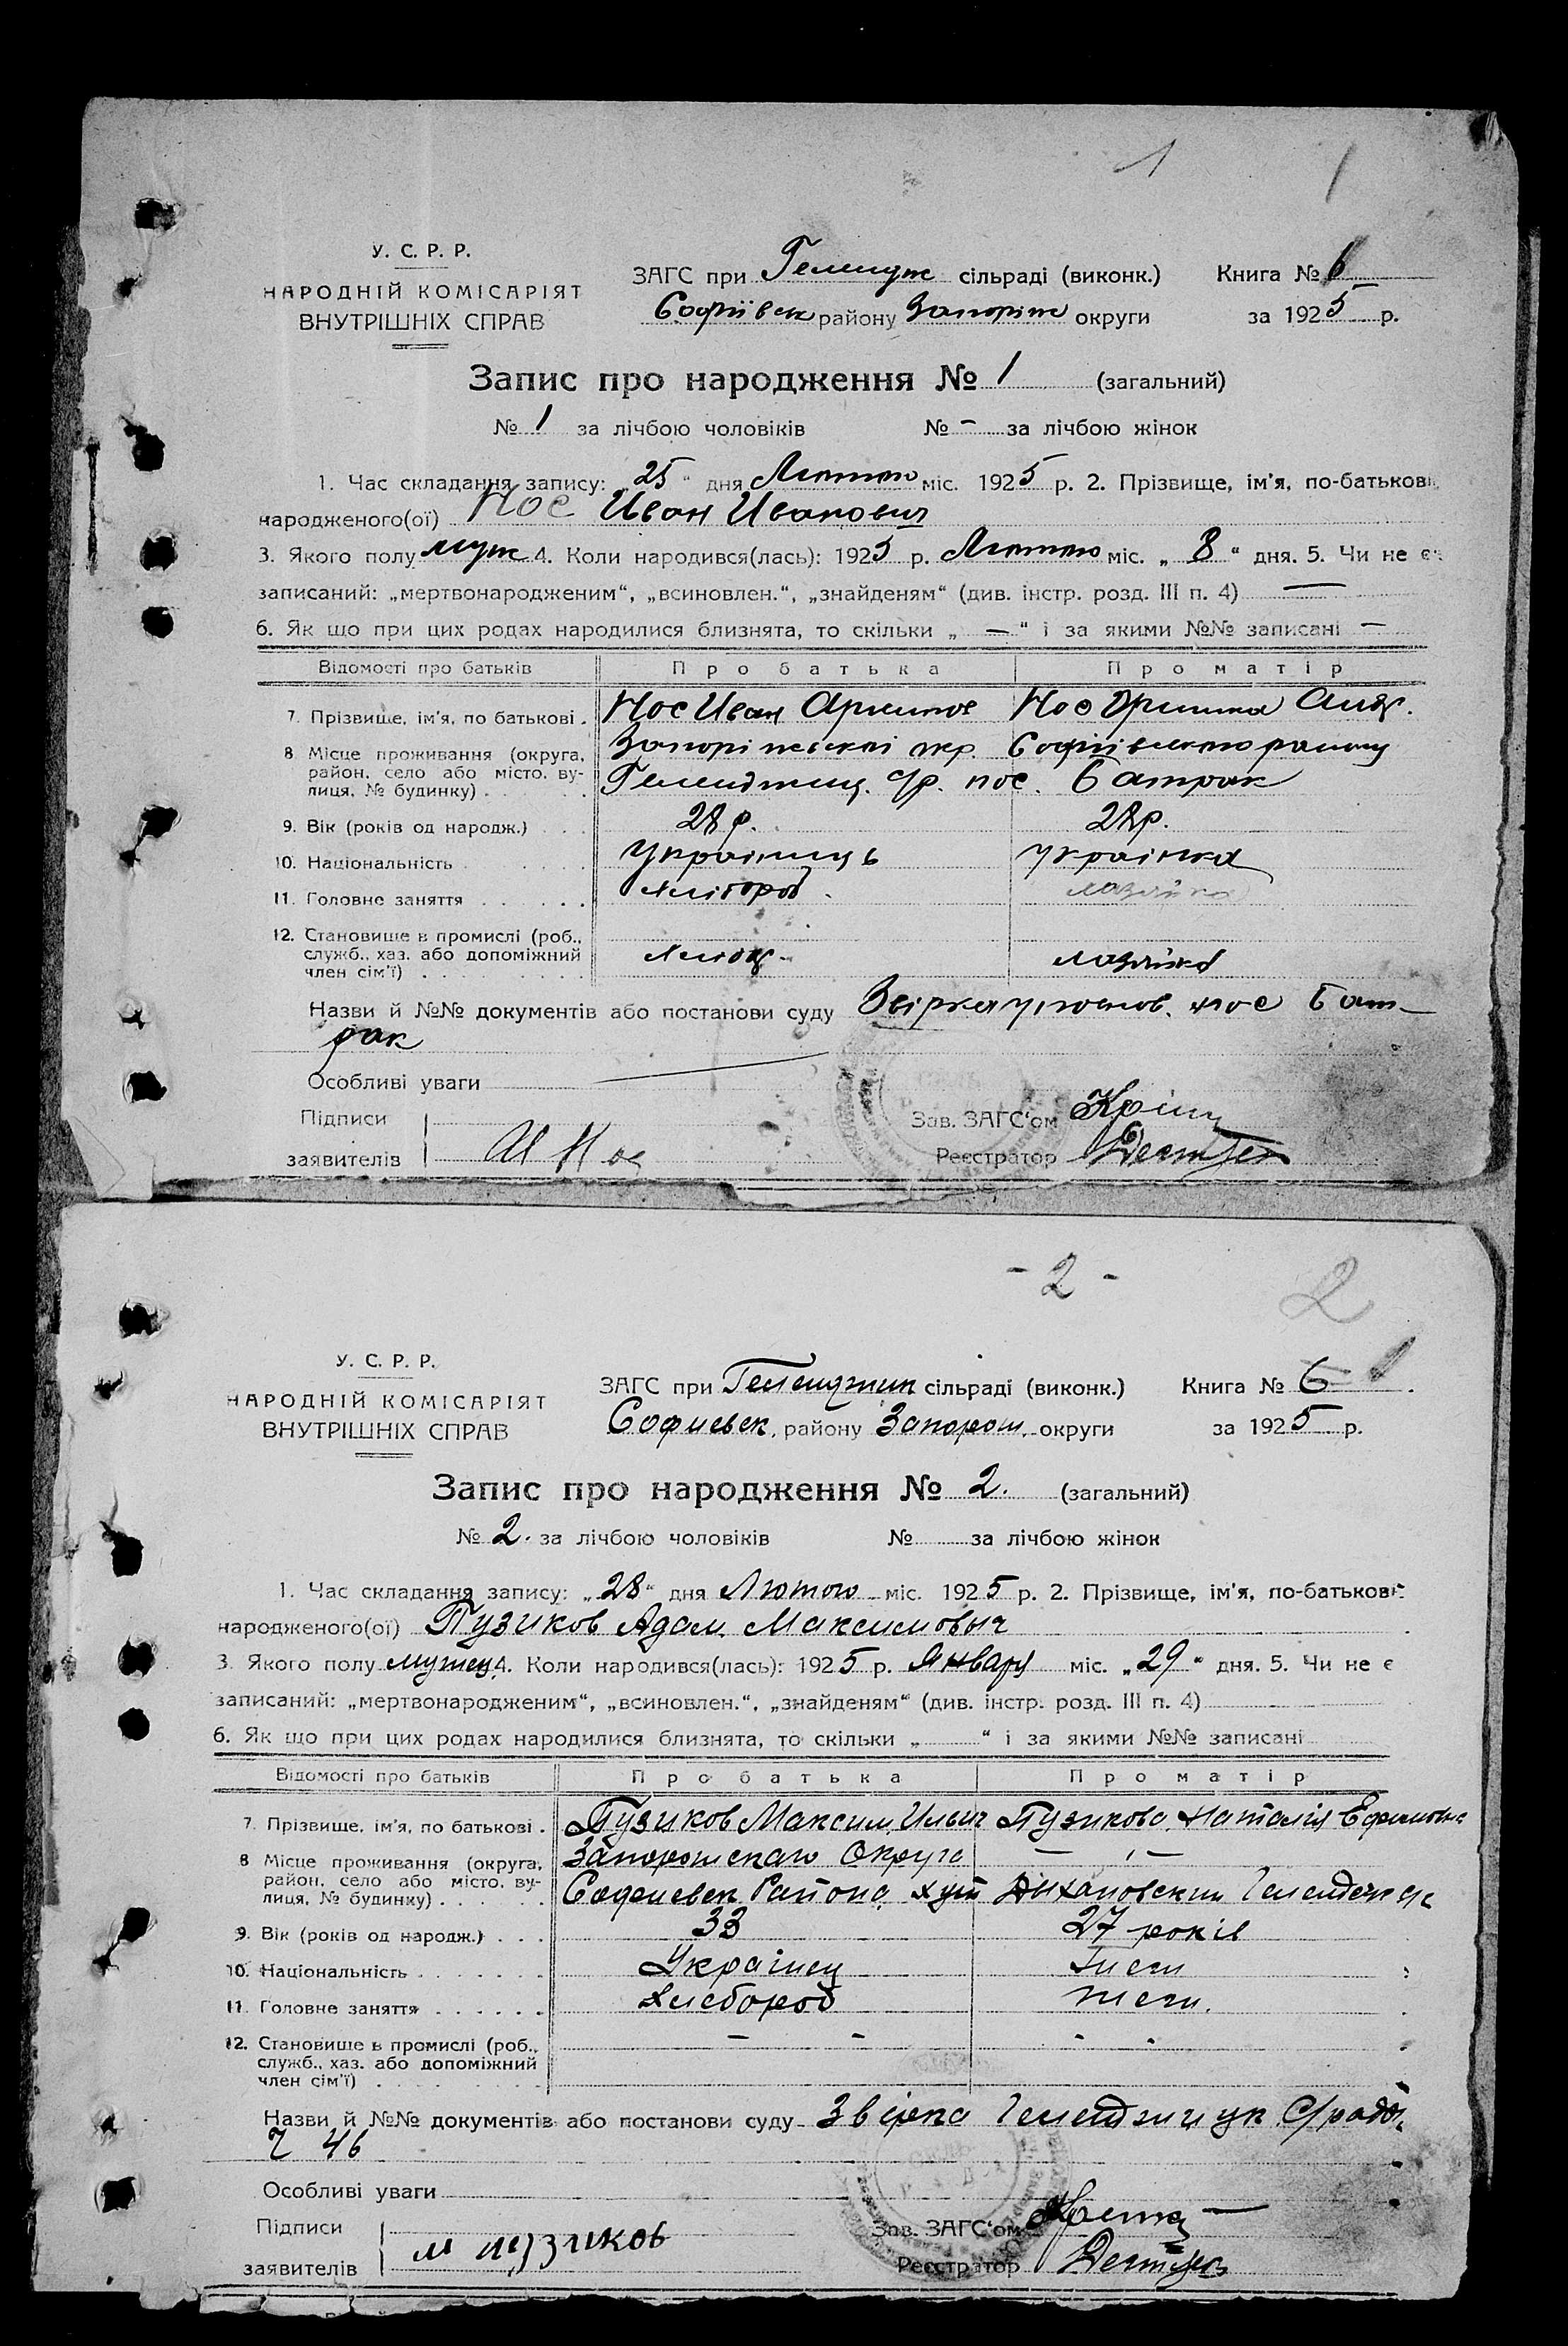 1 1
У. С. Р. Р.
НАРОДНІЙ КОМІСАРІЯТ
ВНУТРІШНІХ СПРАВ
ЗАГС при сільраді (виконк.) Книга № 6
Софіївськ району Запоріж округи за 1925 р.
Запис про народження № 1 (загальний)
№ 1 за лічбою чоловіків № - за лічбою жінок
1. Час складання запису: „25“ дня Лютого міс. 1925 р. 2. Прізвище, ім'я, по-батькові
народженого(ої) Нос Иван Иванович
3. Якого полу муж 4. Коли народився(лась): 1925 р. Лютого міс. „8“ дня. 5. Чи не є
записаний: „мертвонародженим“, „всиновлен.“, „знайденям“ (див. інстр. розд. III п. 4) —
6. Як що при цих родах народилися близнята, то скільки „ — “ і за якими №№ записані —
Відомості про батьків Про батька Про матір
7. Прізвище, ім'я, по батькові . Нос Иван Нос
8 Місце проживання (округа, район, село або місто, вулиця, № будинку) . Запоріжської окр. Софіївського району
пос. Батрак
9. Вік (років од народж.) 28 р. 28 р.
10. Національність Українець українка
11. Головне заняття Хлібороб
12. Становище в промислі (роб., служб., хаз. або допоміжний член сім'ї)
Назви й №№ документів або постанови суду Звірка пос Бат-
рак
Особливі уваги
Підписи Зав. ЗАГС'ом
заявителів И Нос Реєстратор
- 2 - 2
У. С. Р. Р.
НАРОДНІЙ КОМІСАРІЯТ
ВНУТРІШНІХ СПРАВ
ЗАГС при сільраді (виконк.) Книга № 6
Софиевск. району Запорож. округи за 1925 р.
Запис про народження № 2. (загальний)
№ 2. за лічбою чоловіків № за лічбою жінок
1. Час складання запису: „28“ дня Лютого міс. 1925 р. 2. Прізвище, ім'я, по-батькові
народженого(ої) Пузиков Адам Максимович
3. Якого полу 4. Коли народився(лась): 1925 р. Января міс. „29“ дня. 5. Чи не є
записаний: „мертвонародженим“, „всиновлен.“, „знайденям“ (див. інстр. розд. III п. 4)
6. Як що при цих родах народилися близнята, то скільки „ “ і за якими №№ записані
Відомості про батьків Про батька Про матір
7. Прізвище, ім'я, по батькові . Пузиков Максим Ильич Пузикова Наталія Ефимовна
8 Місце проживання (округа, район, село або місто, вулиця, № будинку) . Запорожскаго Округа — „ —
Софиевск Района хут
9. Вік (років од народж.) . . . 33 27 років
10. Національність Украінец
11. Головне заняття Хлебороб
12. Становище в промислі (роб., служб., хаз. або допоміжний член сім'ї) - - - -
Назви й №№ документів або постанови суду Звірка
46
Особливі уваги
Підписи Зав. ЗАГС'ом
заявителів м пузиков Реєстратор